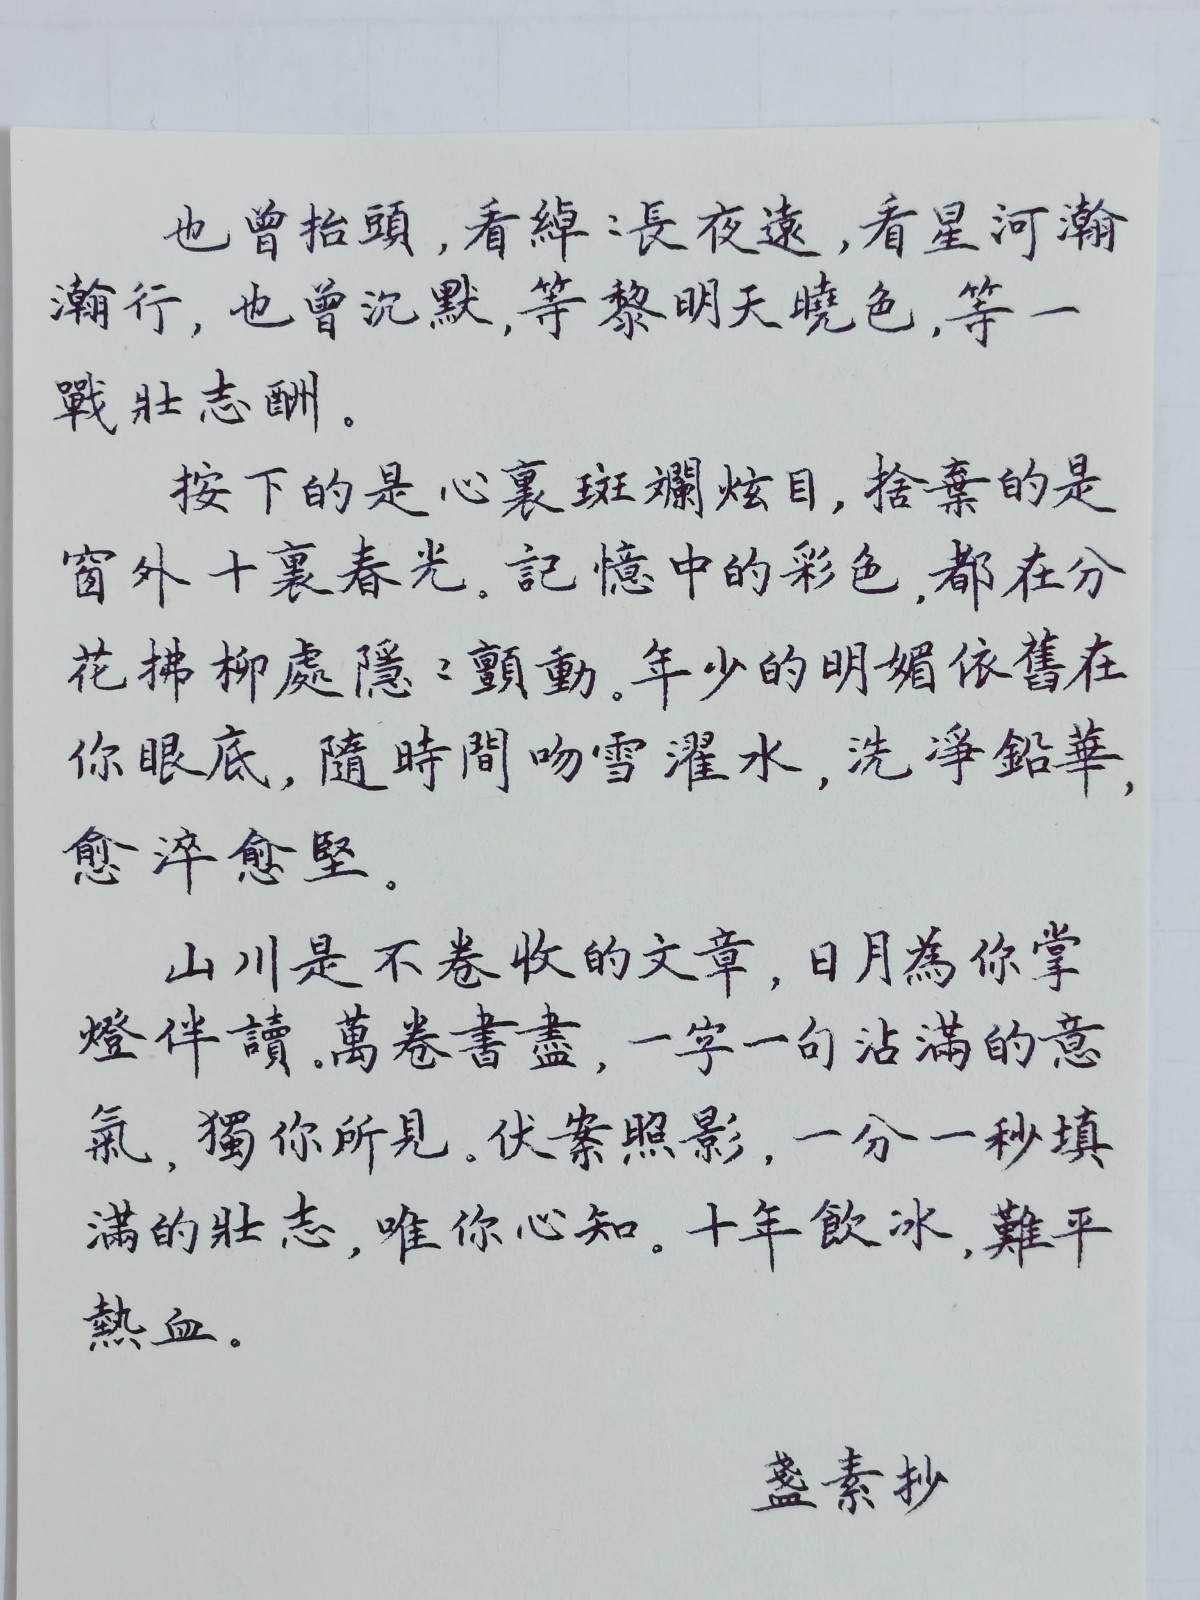 也曾抬頭,看綽〻長夜遠,看星河瀚
瀚行,也曾沉默,等黎明天曉色,等一
戰壯志酬。
按下的是心裏斑斕炫目,捨棄的是
窗外十裏春光。記憶中的彩色,都在分
花拂柳處隱〻顫動。年少的明媚依舊在
你眼底,隨時間吻雪濯水,洗凈鉛華,
愈淬愈堅。
山川是不卷收的文章,日月為你掌
燈伴讀。萬卷書盡,一字一句沾滿的意
氣,獨你所見。伏案照影,一分一秒填
滿的壯志,唯你心知。十年飲冰,難平
熱血。
盞素抄